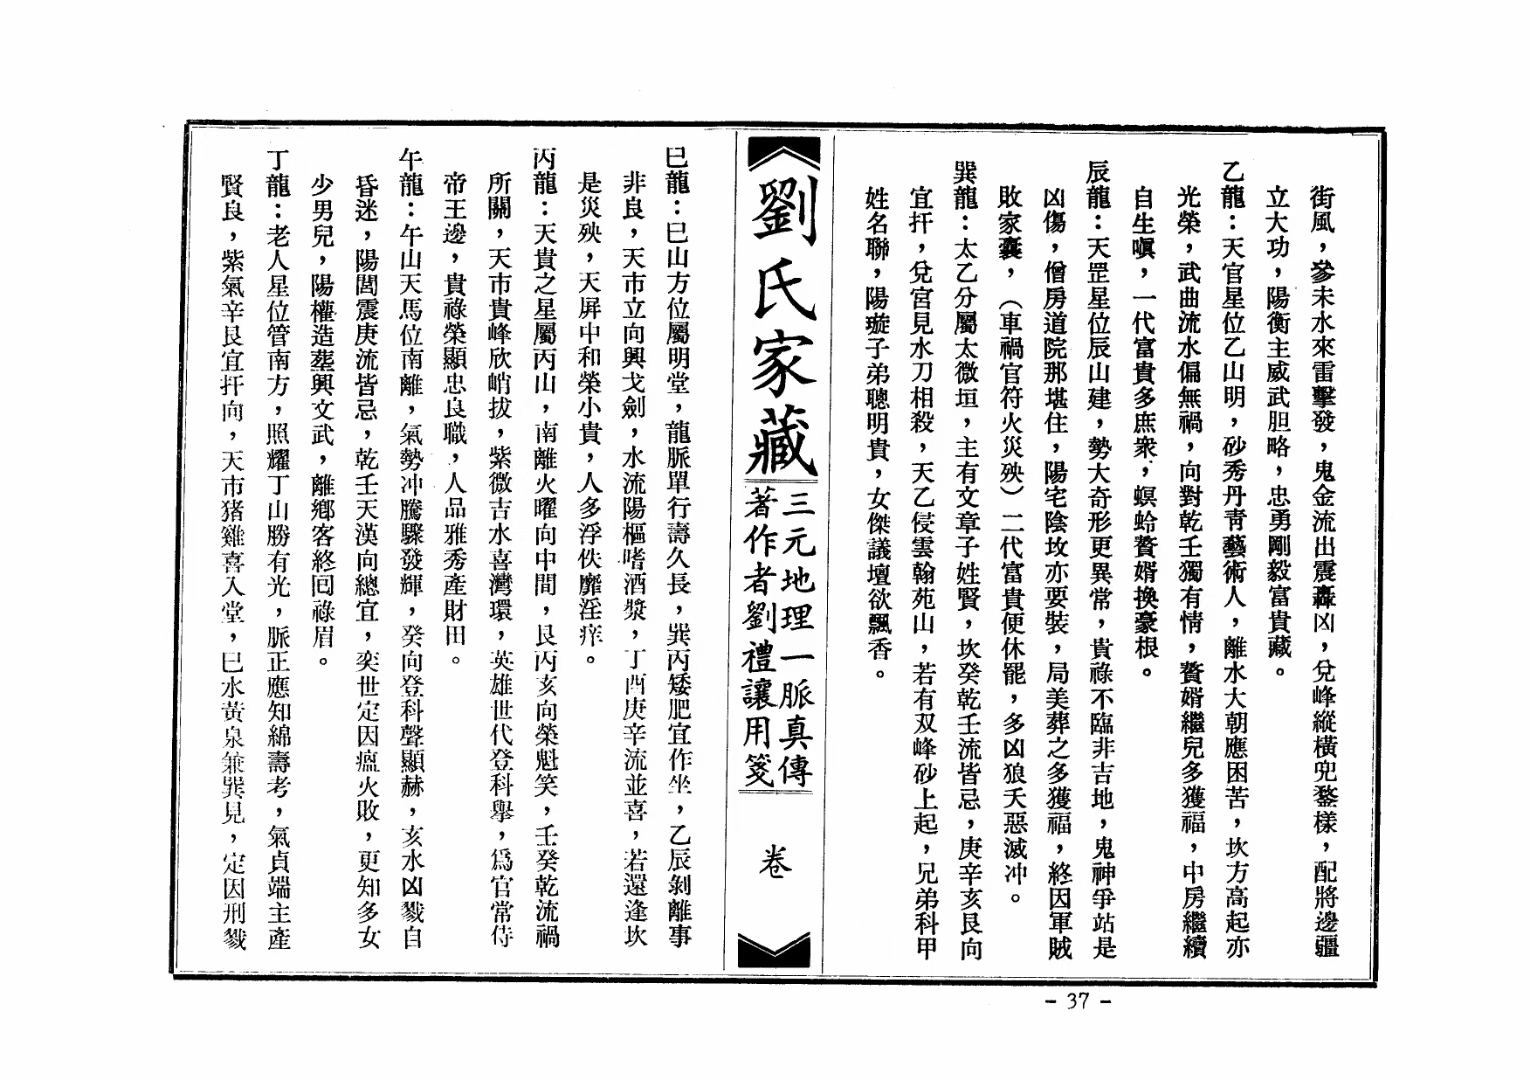 街風，參未水來雷擊發，鬼金流出震轟凶，兌峰縱橫兜鍪樣，配將邊疆
立大功，陽衡主威武胆略，忠勇剛毅富貴藏。
乙龍：天官星位乙山明，砂秀丹青藝術人，離水大朝應困苦，坎方高起亦
光榮，武曲流水偏無禍，向對乾壬獨有情，贅婿繼兒多獲福，中房繼續
自生嗔，一代富貴多庶衆，螟蛉贅婿換豪根。
辰龍：天罡星位辰山建，勢大奇形更異常，貴祿不臨非吉地，鬼神爭站是
凶傷，僧房道院那堪住，陽宅陰坟亦要裝，局美葬之多獲福，終因軍賊
敗家囊，（車禍官符火災殃）二代富貴便休罷，多凶狼夭惡滅冲。
巽龍：太乙分屬太微垣，主有文章子姓賢，坎癸乾壬流皆忌，庚辛亥艮向
宜扦，兌宮見水刀相殺，天乙侵雲翰苑山，若有双峰砂上起，兄弟科甲
姓名聯，陽璇子弟聰明貴，女傑議壇欲飄香。
劉氏家藏
三元地理一脈真傳
著作者劉禮讓用箋
卷
巳龍：巳山方位屬明堂，龍脈單行壽久長，巽丙矮肥宜作坐，乙辰剝離事
非良，天市立向興戈劍，水流陽樞嗜酒漿，丁酉庚辛流並喜，若還逢坎
是災殃，天屏中和榮小貴，人多浮佚靡淫痒。
丙龍：天貴之星屬丙山，南離火曜向中間，艮丙亥向榮魁笑，壬癸乾流禍
所關，天市貴峰欣峭拔，紫微吉水喜灣環，英雄世代登科舉，爲官常侍
帝王邊，貴祿榮顯忠良職，人品雅秀產財田。
午龍：午山天馬位南離，氣勢冲騰驟發輝，癸向登科聲顯赫，亥水凶戮自
昏迷，陽閭震庚流皆忌，乾壬天漢向總宜，奕世定因瘟火敗，更知多女
少男兒，陽權造塟興文武，離鄉客終囘祿眉。
丁龍：老人星位管南方，照耀丁山勝有光，脈正應知綿壽考，氣貞端主產
賢良，紫氣辛艮宜扦向，天市猪雞喜入堂，巳水黃泉兼巽見，定因刑戮
- 37 -